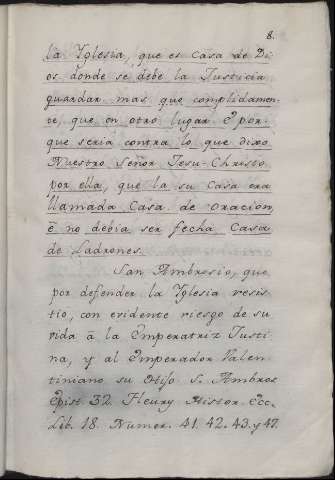 8.
la Yglesia, que es Casa de Di-
os donde se debe la Justicia
guardar mas que complidamen-
te, que en otro lugar é por-
que seria contra lo que dixo
Nuestro Señor Jesu-Christo
por ella, que la su Casa era
llamada Casa de oracion,
é no debia ser fecha Casa
de Ladrones.
San Ambrosio, que
por defender la Yglesia resis-
tio, con evidente riesgo de su
vida á la Emperatriz Justi-
na, y al Emperador Valen-
tiniano su Hijo S. Ambros.
Epist. 32. Fleury Histor. Ecc.
Lib. 18. Numer. 41. 42. 43. y 47.